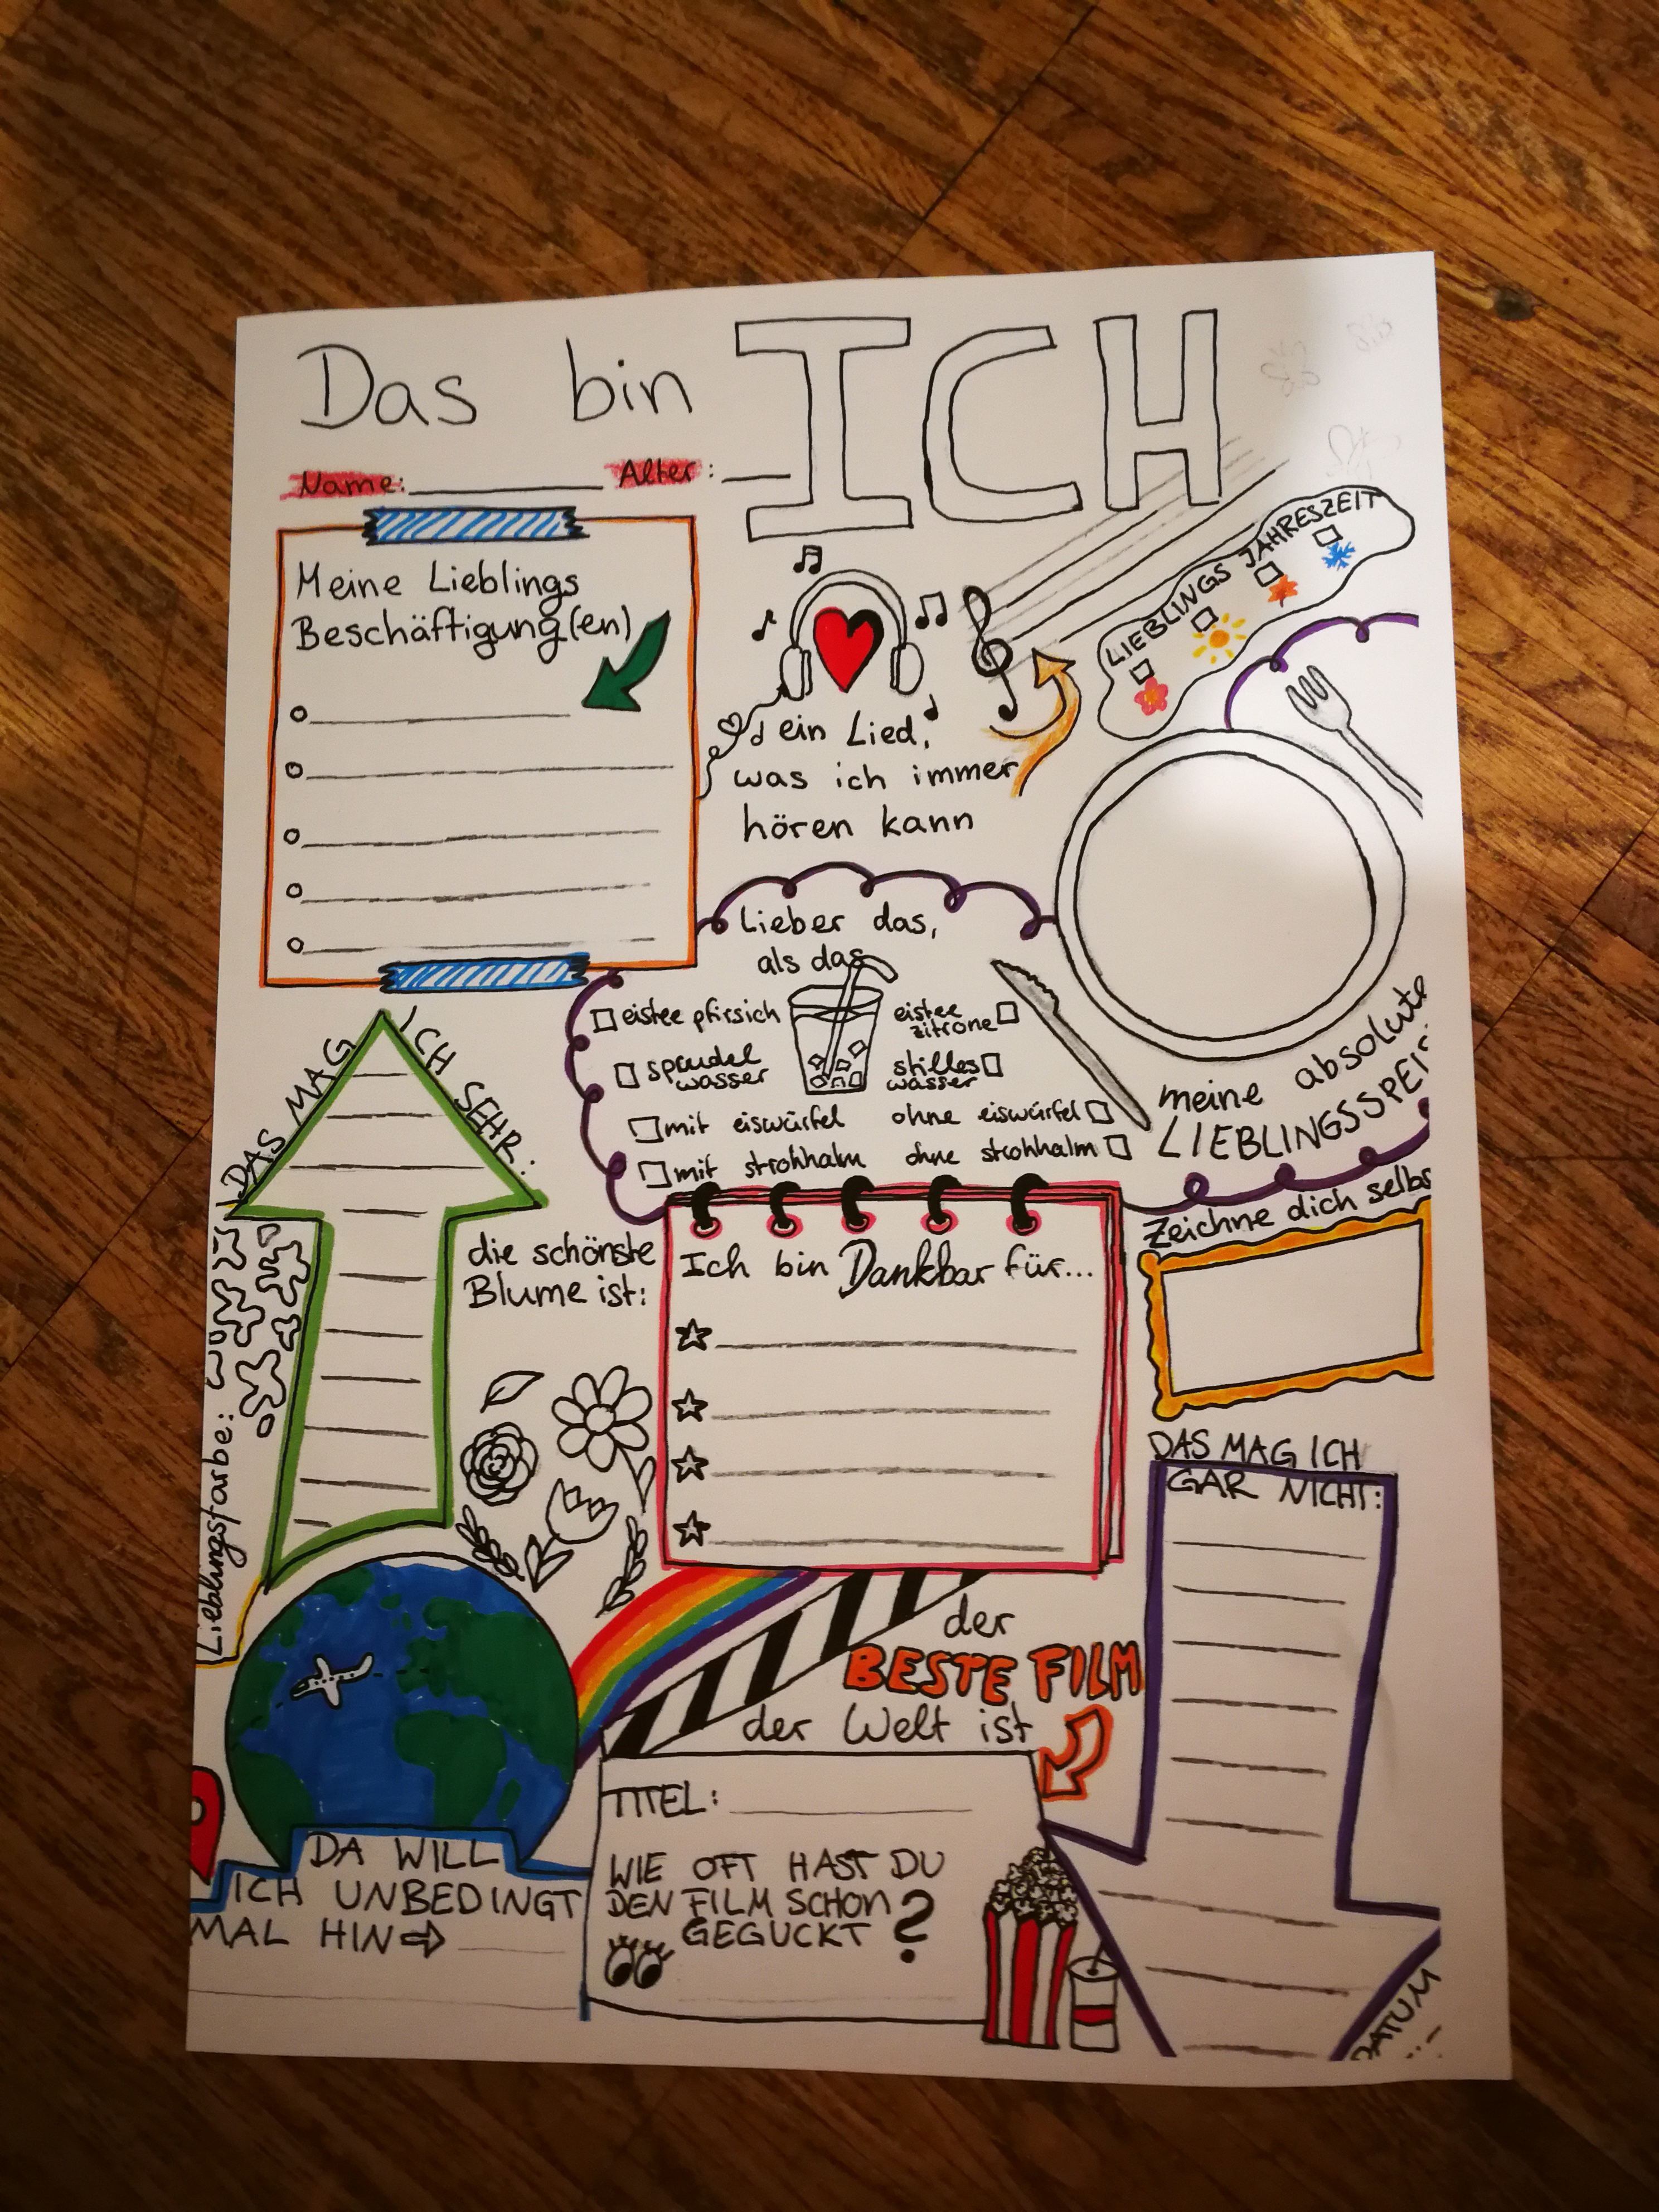 Das bin ICH
Name: Alter:
Meine Lieblings
Beschäftigung(en)
ein Lied,
was ich immer
hören kann
LIEBLINGS JAHRESZEIT
Lieber das,
als das
eistee pfirsich
eistee
zitrone
sprudel
wasser
stilles
wasser
mit eiswürfel ohne eiswürfel
mit strohhalm ohne strohhalm
meine absolute
LIEBLINGSSPEIS
DAS MAG ICH SEHR...
die schönste
Blume ist:
Ich bin Dankbar für...
Zeichne dich selbs
Lieblingsfarbe:
DAS MAG ICH
GAR NICHT:
der
BESTE FILM
der Welt ist
TITEL:
WIE OFT HAST DU
DEN FILM SCHON
GEGUCKT ?
DA WILL
ICH UNBEDINGT
MAL HIN
DATUM